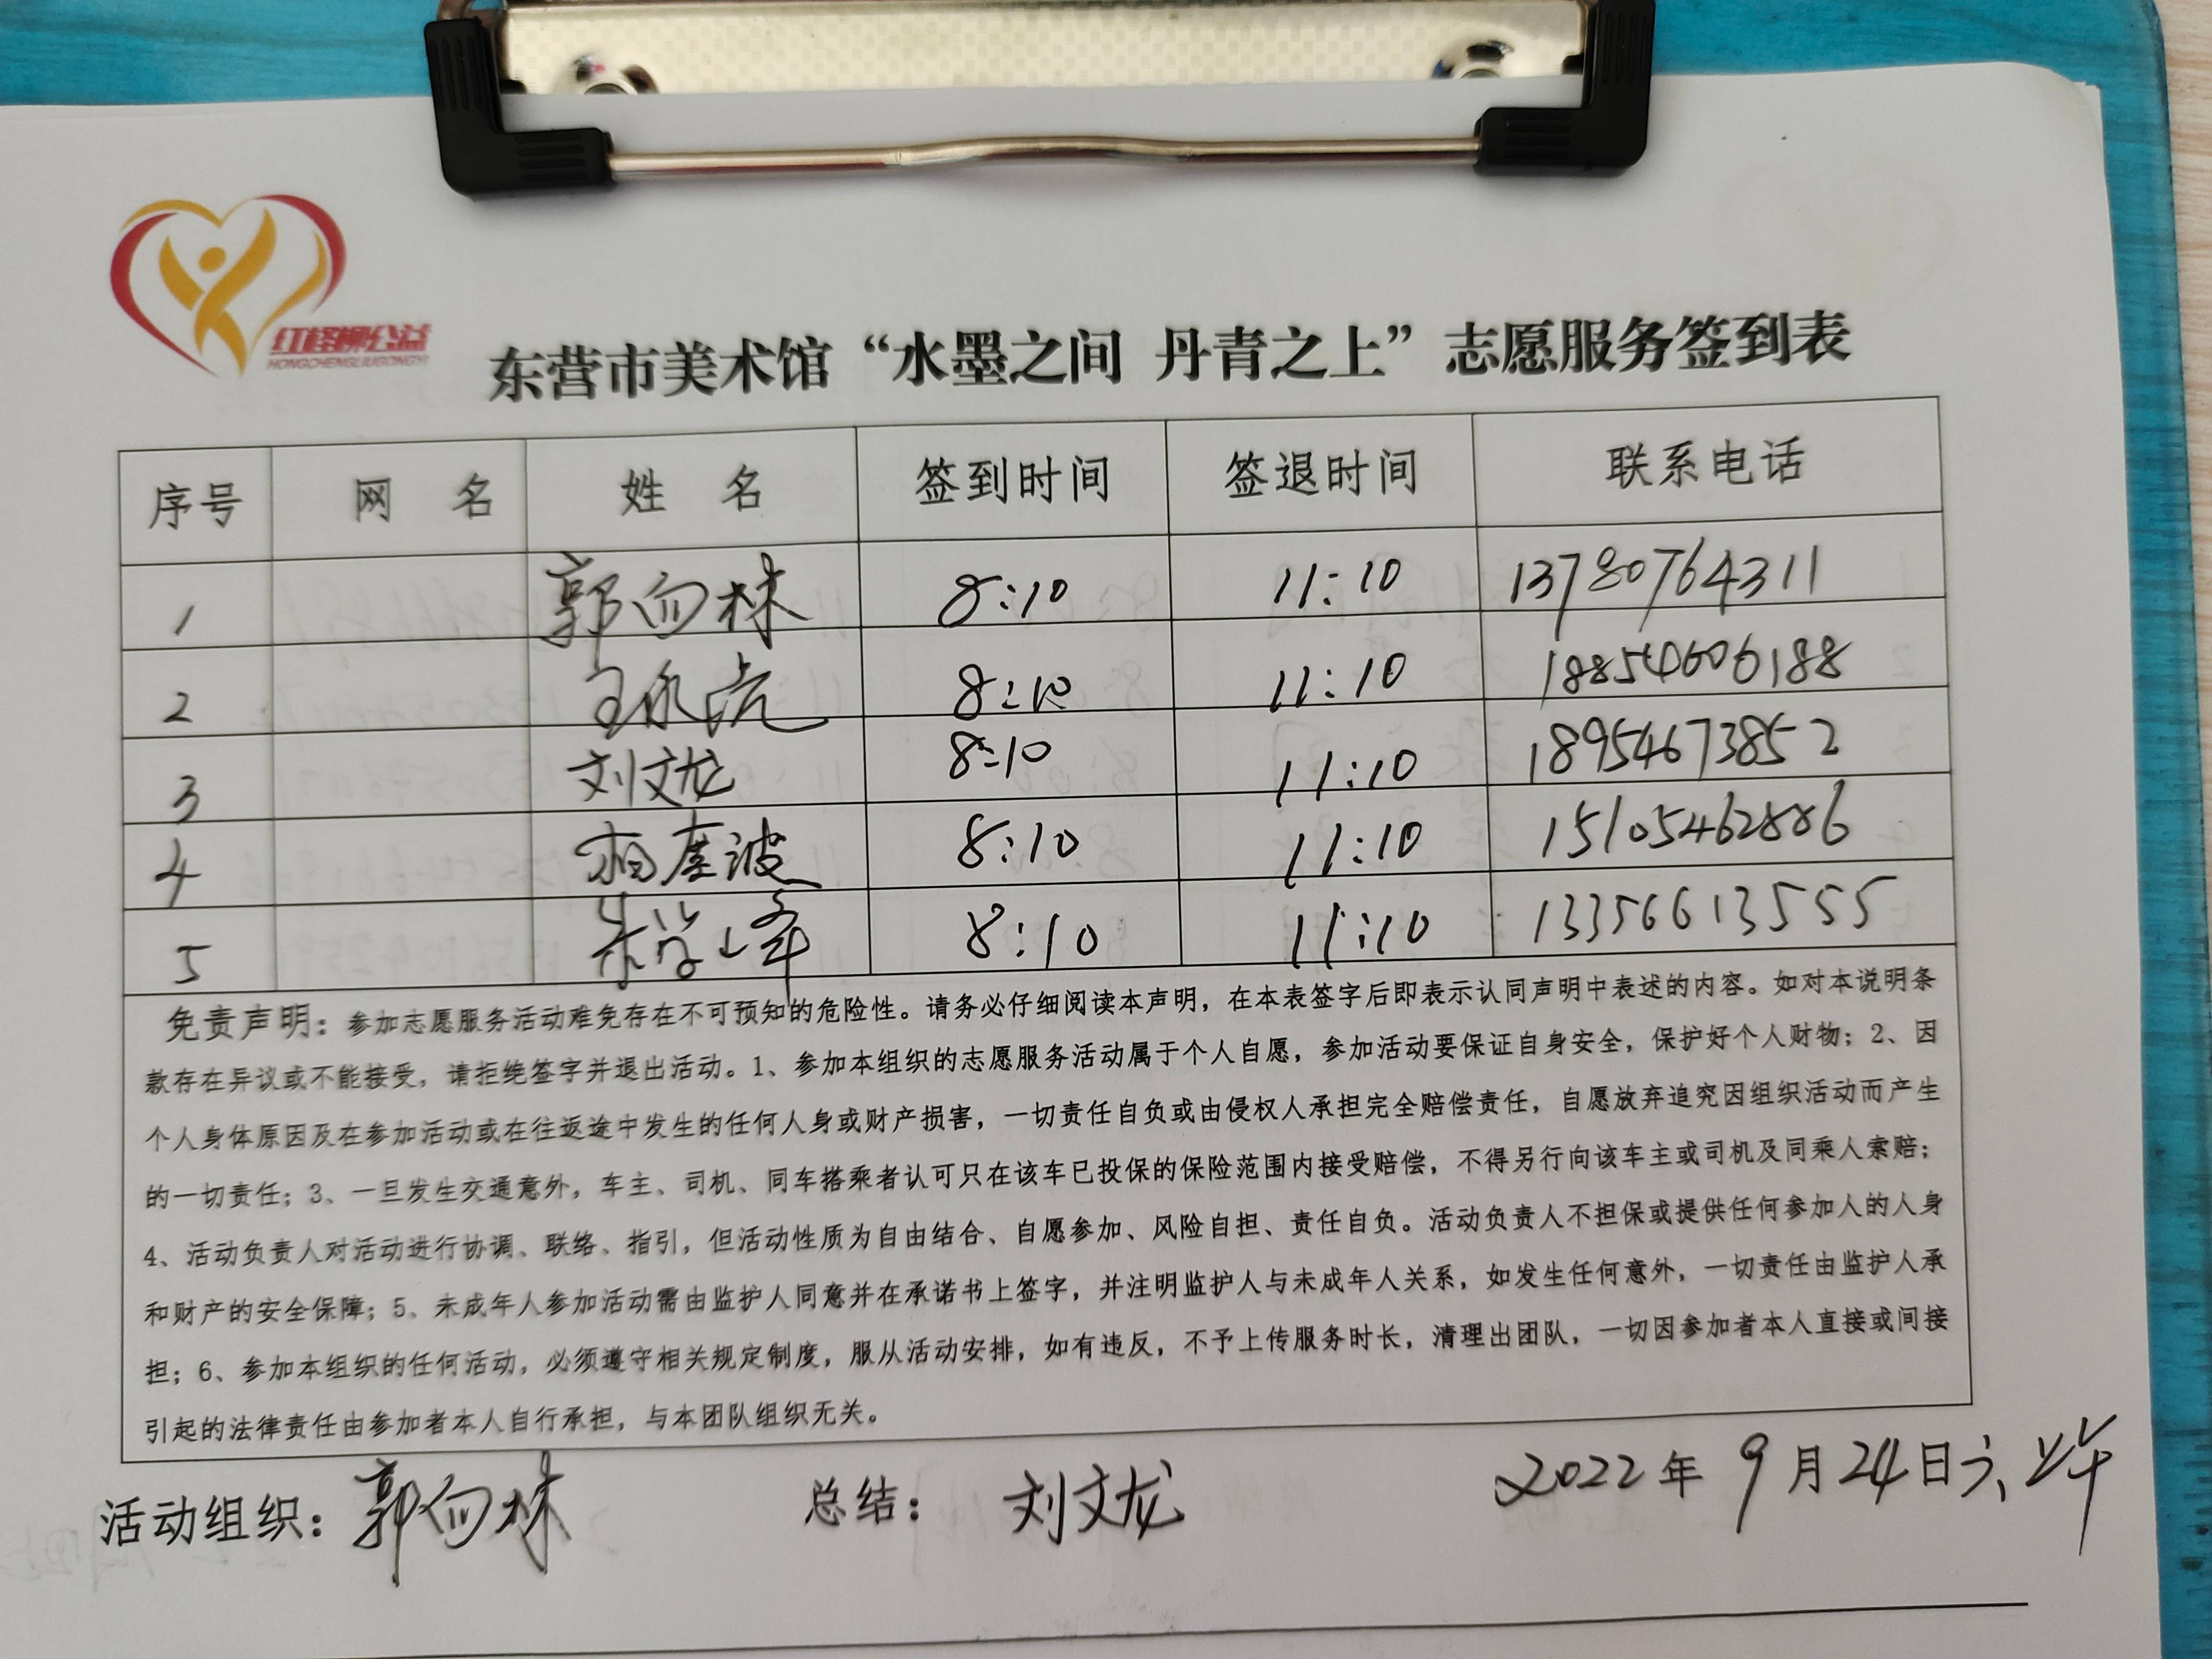 红柽柳公益
HONGCHENGLIUGONGYI
东营市美术馆“水墨之间 丹青之上”志愿服务签到表
序号 网 名 姓 名 签到时间 签退时间 联系电话
1 郭向林 8:10 11:10 13780764311
2 王永虎 8:10 11:10 18854606188
3 刘文龙 8:10 11:10 18954673852
4 8:10 11:10 15105462886
5 朱学峰 8:10 11:10 13356613555
免责声明：参加志愿服务活动难免存在不可预知的危险性。请务必仔细阅读本声明，在本表签字后即表示认同声明中表述的内容。如对本说明条
款存在异议或不能接受，请拒绝签字并退出活动。1、参加本组织的志愿服务活动属于个人自愿，参加活动要保证自身安全，保护好个人财物；2、因
个人身体原因及在参加活动或在往返途中发生的任何人身或财产损害，一切责任自负或由侵权人承担完全赔偿责任，自愿放弃追究因组织活动而产生
的一切责任；3、一旦发生交通意外，车主、司机、同车搭乘者认可只在该车已投保的保险范围内接受赔偿，不得另行向该车主或司机及同乘人索赔；
4、活动负责人对活动进行协调、联络、指引，但活动性质为自由结合、自愿参加、风险自担、责任自负。活动负责人不担保或提供任何参加人的人身
和财产的安全保障；5、未成年人参加活动需由监护人同意并在承诺书上签字，并注明监护人与未成年人关系，如发生任何意外，一切责任由监护人承
担；6、参加本组织的任何活动，必须遵守相关规定制度，服从活动安排，如有违反，不予上传服务时长，清理出团队，一切因参加者本人直接或间接
引起的法律责任由参加者本人自行承担，与本团队组织无关。
活动组织：郭向林 总结：刘文龙 2022年9月24日六上午